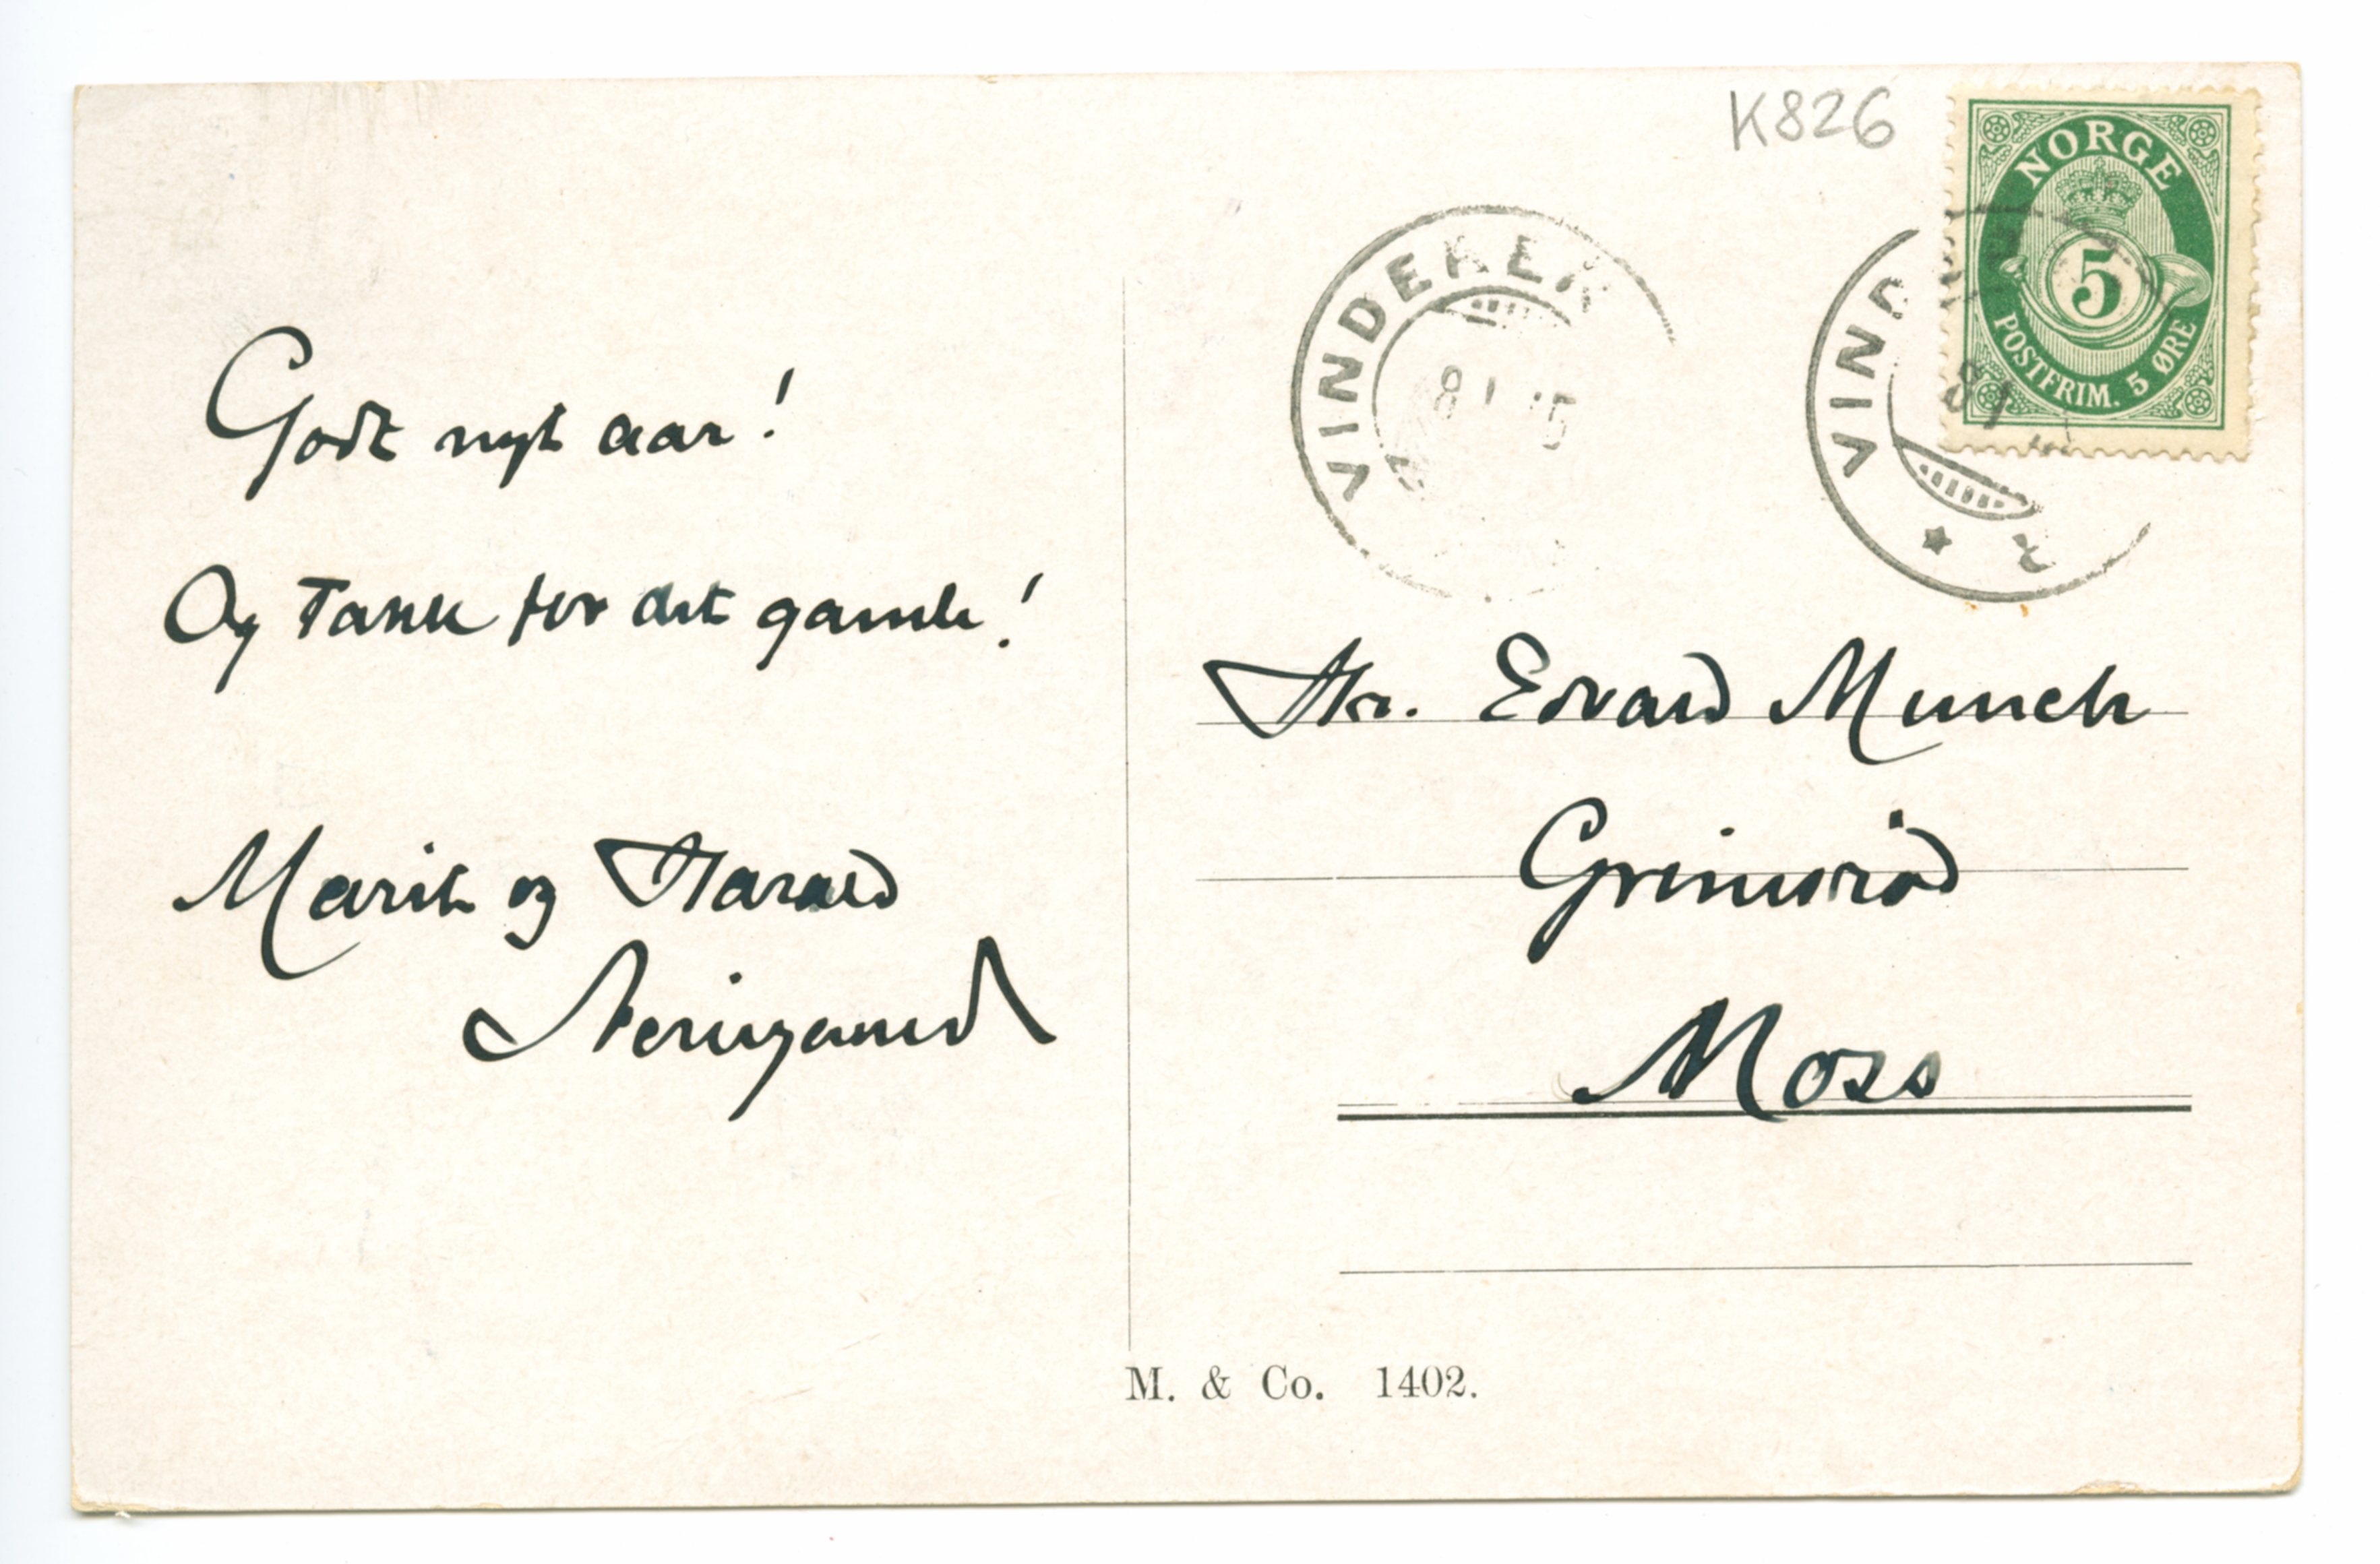 K826
NORGE
5
POSTFRIM. 5 ØRE
VINDEREN
8 I 15
VIND
8 I
Godt nyt aar!
Og Takk for det gamle!
Marit og Harald
Nørregaard
Hr. Edvard Munch
Grimsrød
Moss
M. & Co. 1402.